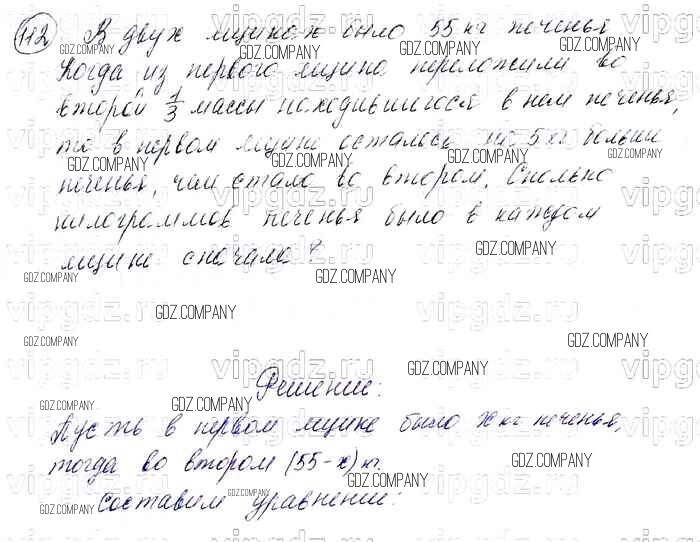 112 В двух ящиках было 55 кг печенья
Когда из первого ящика переложили во
второй 1/3 массы находившегося в нем печенья,
то в первом ящике осталось на 5 кг больше
печенья, чем стало во втором. Сколько
килограммов печенья было в каждом
ящике сначала?
Решение:
Пусть в первом ящике было x кг печенья,
тогда во втором (55-x) кг.
Составим уравнение:
GDZ.COMPANY
vipgdz.ru